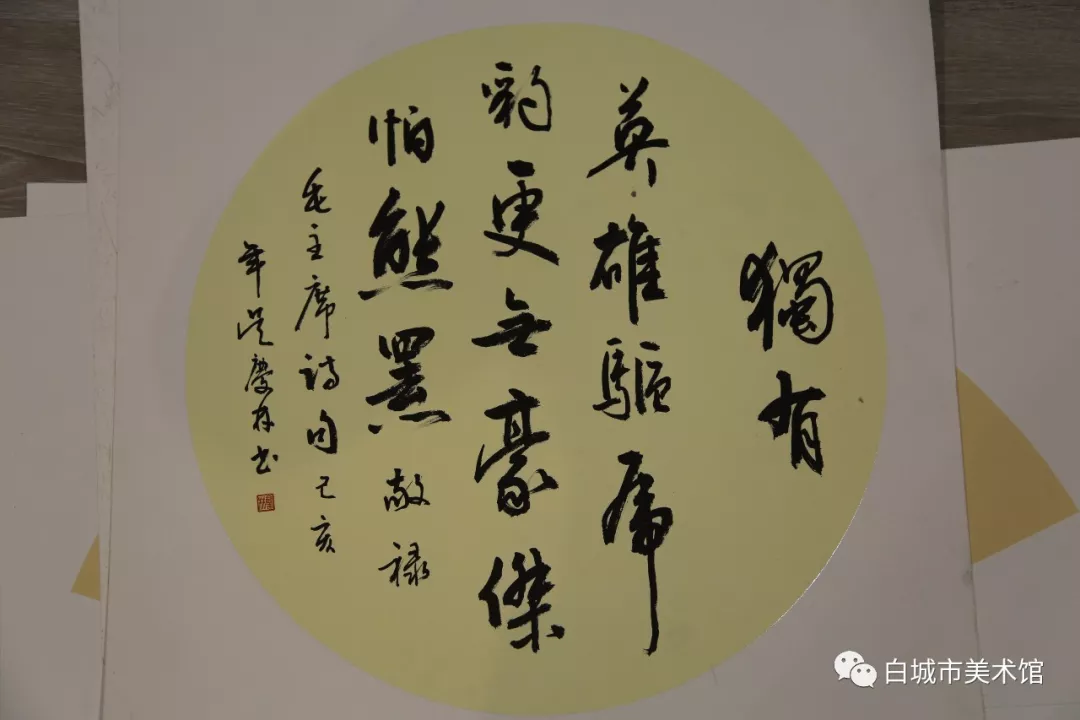 獨有
英雄驅虎
豹更無豪傑
怕熊羆敬祿
毛主席詩句己亥
年吳慶林書
白城市美术馆